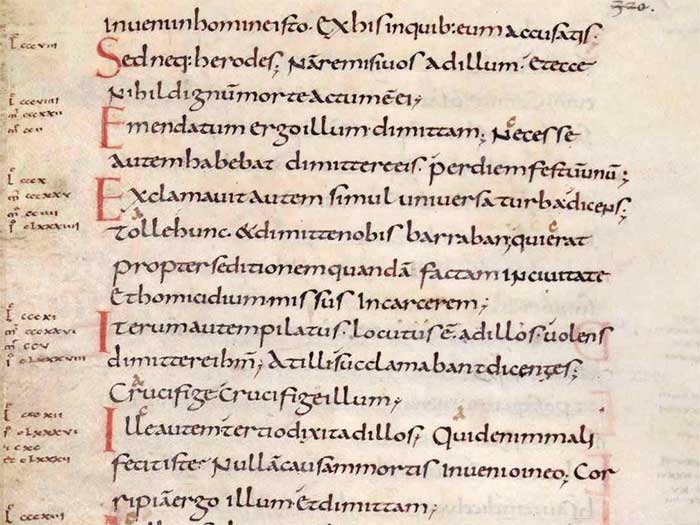 320.
inveni in homine isto. Ex his in quib: eum accusatis.
Sed neq: herodes. Nā remisi vos ad illum. et ecce
Nihil dignū morte actum ē ei;
Emendatum ergo illum dimittam; Necesse
autem habebat dimittere eis. per diem festū unū;
Exclamavit autem simul universa turba dicens;
Tolle hunc. & dimitte nobis barraban; qui erat
propter seditionem quandā factam in civitate
Et homicidium. missus in carcerem;
Iterum autem pilatus. locutus ē. ad illos. volens
dimittere ihm̄; At illi succlamabant dicentes;
Crucifige. Crucifige illum;
Ille autem tertio dixit ad illos; Quid enim mali
fecit iste. Nullā causam mortis invenio in eo; Cor
ripiā ergo illum. Et dimittam;